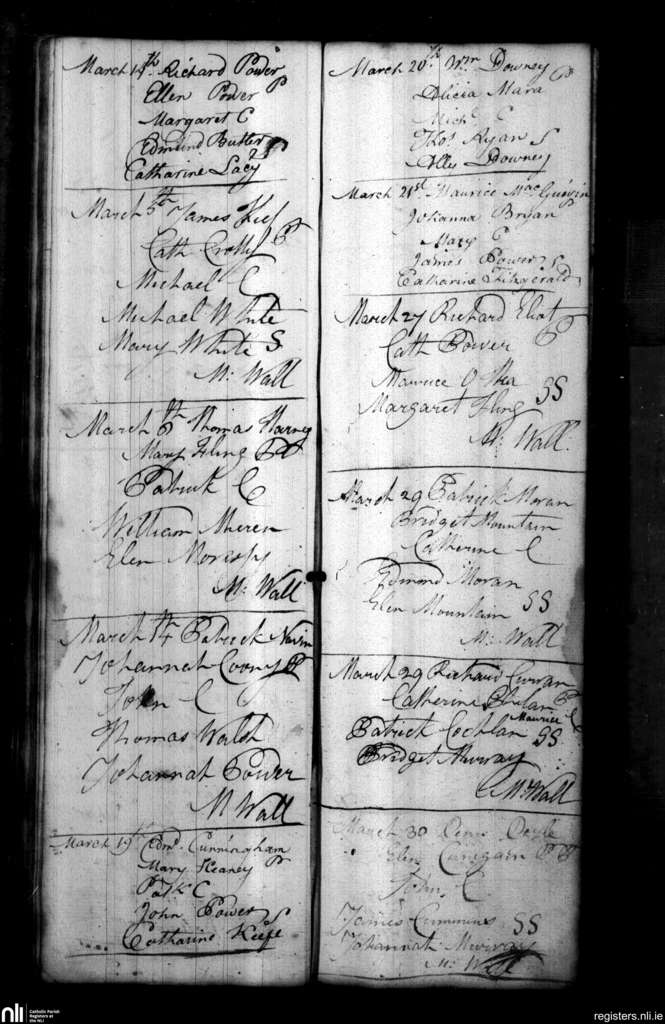 March 1st. Richard Power
Ellen Power P
Margaret C
Edmund Butler
Catharine Lacy S
March 5th James Kief
Cath Crotty P
Michael C
Michael White
Mary White S
M. Wall
March 6th Thomas Harney
Mary Fling PP
Patrick C
William
Elen
M. Wall
March 14th Patrick
Johannah Coony P
John C
Thomas Walsh
Johannah Power
M Wall
March 19th Edmd. Cunningham
Mary Heaney P
Patk C
John Power S
Catharine Keefe
March 20th Wm Downey P
Alicia Mara
Michl. C
Thos. Ryan S
Alles Downey
March 21st. Maurice Mac
Johanna Bryan P
Mary C
James Power S
Catharine Fitzgerald
March 27 Richard Eliot
Cath Power PP
Maurice O Shea
Margaret Fling SS
M. Wall
March 29 Patrick Moran
Bridget Mountain
Catherine C
Edmond Moran
Elen Mountain SS
M. Wall
March 29 Richard Curran
Catherine Phelan P
Maurice C
Patrick Cochlan SS
Bridget Murray
M. Wall
March 30 Denis Doyle
Elen PP
John C
James Cummins SS
Johannah Murray
M. Wall
nli
Catholic Parish
Registers at
the NLI
registers.nli.ie